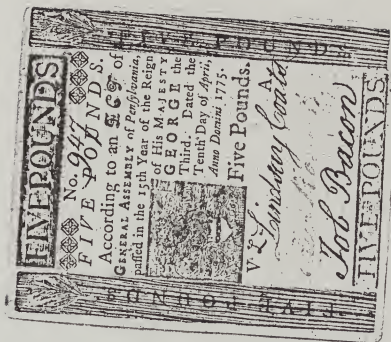 FIVE POUNDS
FIVE POUNDS
No. 947
FIVE POUNDS.
According to an ACT of
GENERAL ASSEMBLY of Pennsylvania,
passed in the 15th Year of the Reign
of His MAJESTY
GEORGE the
Third. Dated the
Tenth Day of April,
Anno Domini 1775.
Five Pounds.
V £ A
Lindsay Coats
Job Bacon
FIVE POUNDS
FIVE POUNDS